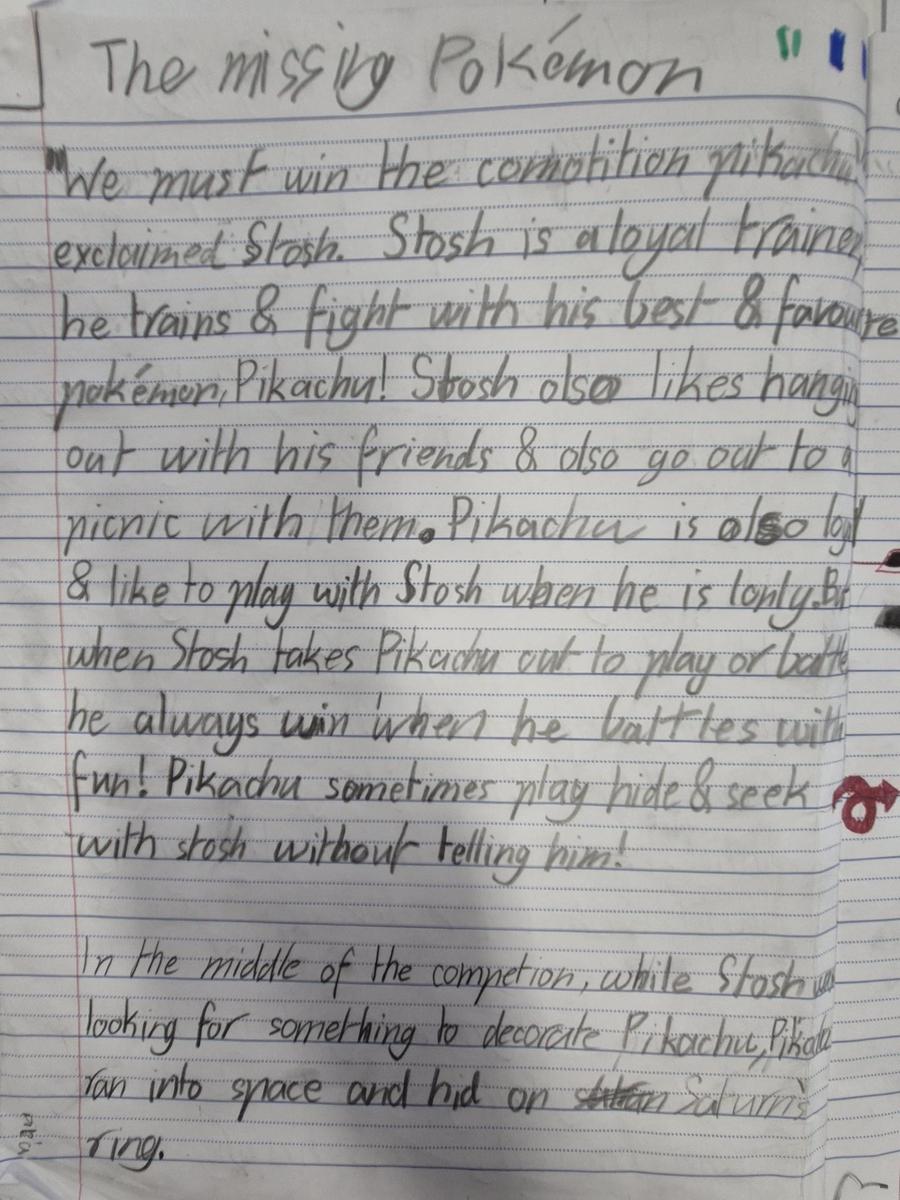 The missing Pokémon
"We must win the comptition pikachu"
exclaimed Stosh. Stosh is a loyal trainer,
he trains & fight with his best & favourte
pokémon, Pikachu! Stosh also likes hanging
out with his friends & also go out to a
picnic with them. Pikachu is also loyl
& like to play with Stosh when he is lonly. But
when Stosh takes Pikachu out to play or battle
he always win when he battles with
fun! Pikachu sometimes play hide & seek
with stosh without telling him!
In the middle of the competion, while Stosh was
looking for something to decorate Pikachu, Pikachu
ran into space and hid on Saturn's
ring.